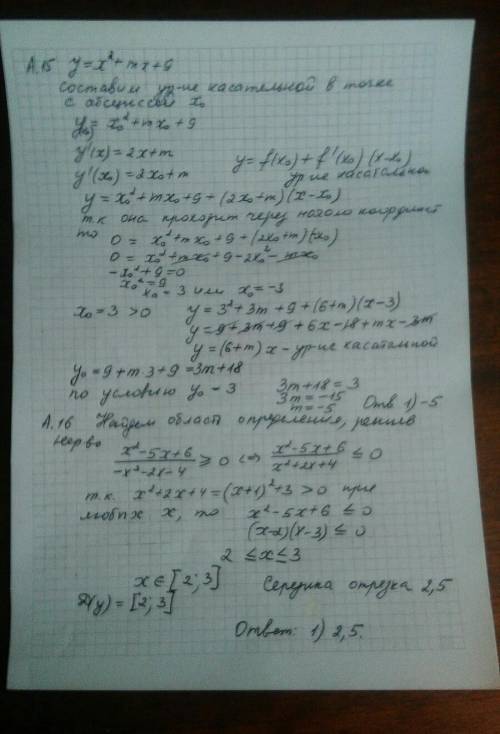 А.15 y = x² + mx + 9
составим ур-ие касательной в точке
с абсциссой x₀
y₀ = x₀² + mx₀ + 9
y'(x) = 2x + m
y'(x₀) = 2x₀ + m y = f(x₀) + f'(x₀)(x-x₀)
ур-ие касательной
y = x₀² + mx₀ + 9 + (2x₀+m)(x-x₀)
т.к она проходит через начало координат
то 0 = x₀² + mx₀ + 9 + (2x₀+m)(-x₀)
0 = x₀² + mx₀ + 9 - 2x₀² - mx₀
-x₀² + 9 = 0
x₀² = 9
x₀ = 3 или x₀ = -3
x₀ = 3 > 0 y = 3² + 3m + 9 + (6+m)(x-3)
y = 9 + 3m + 9 + 6x - 18 + mx - 3m
y = (6+m)x - ур-ие касательной
y₀ = 9 + m·3 + 9 = 3m+18
по условию y₀ - 3 3m+18 = 3
3m = -15
m = -5 Отв 1) -5
А.16 Найдем область определения, решив
нер-во
x²-5x+6 / -x²-2x-4 ≥ 0 ⇔ x²-5x+6 / x²+2x+4 ≤ 0
т.к. x²+2x+4 = (x+1)²+3 > 0 при
любых x, то x²-5x+6 ≤ 0
(x-2)(x-3) ≤ 0
2 ≤ x ≤ 3
x ∈ [2; 3] Середина отрезка 2,5
D(y) = [2; 3]
Ответ: 1) 2,5.